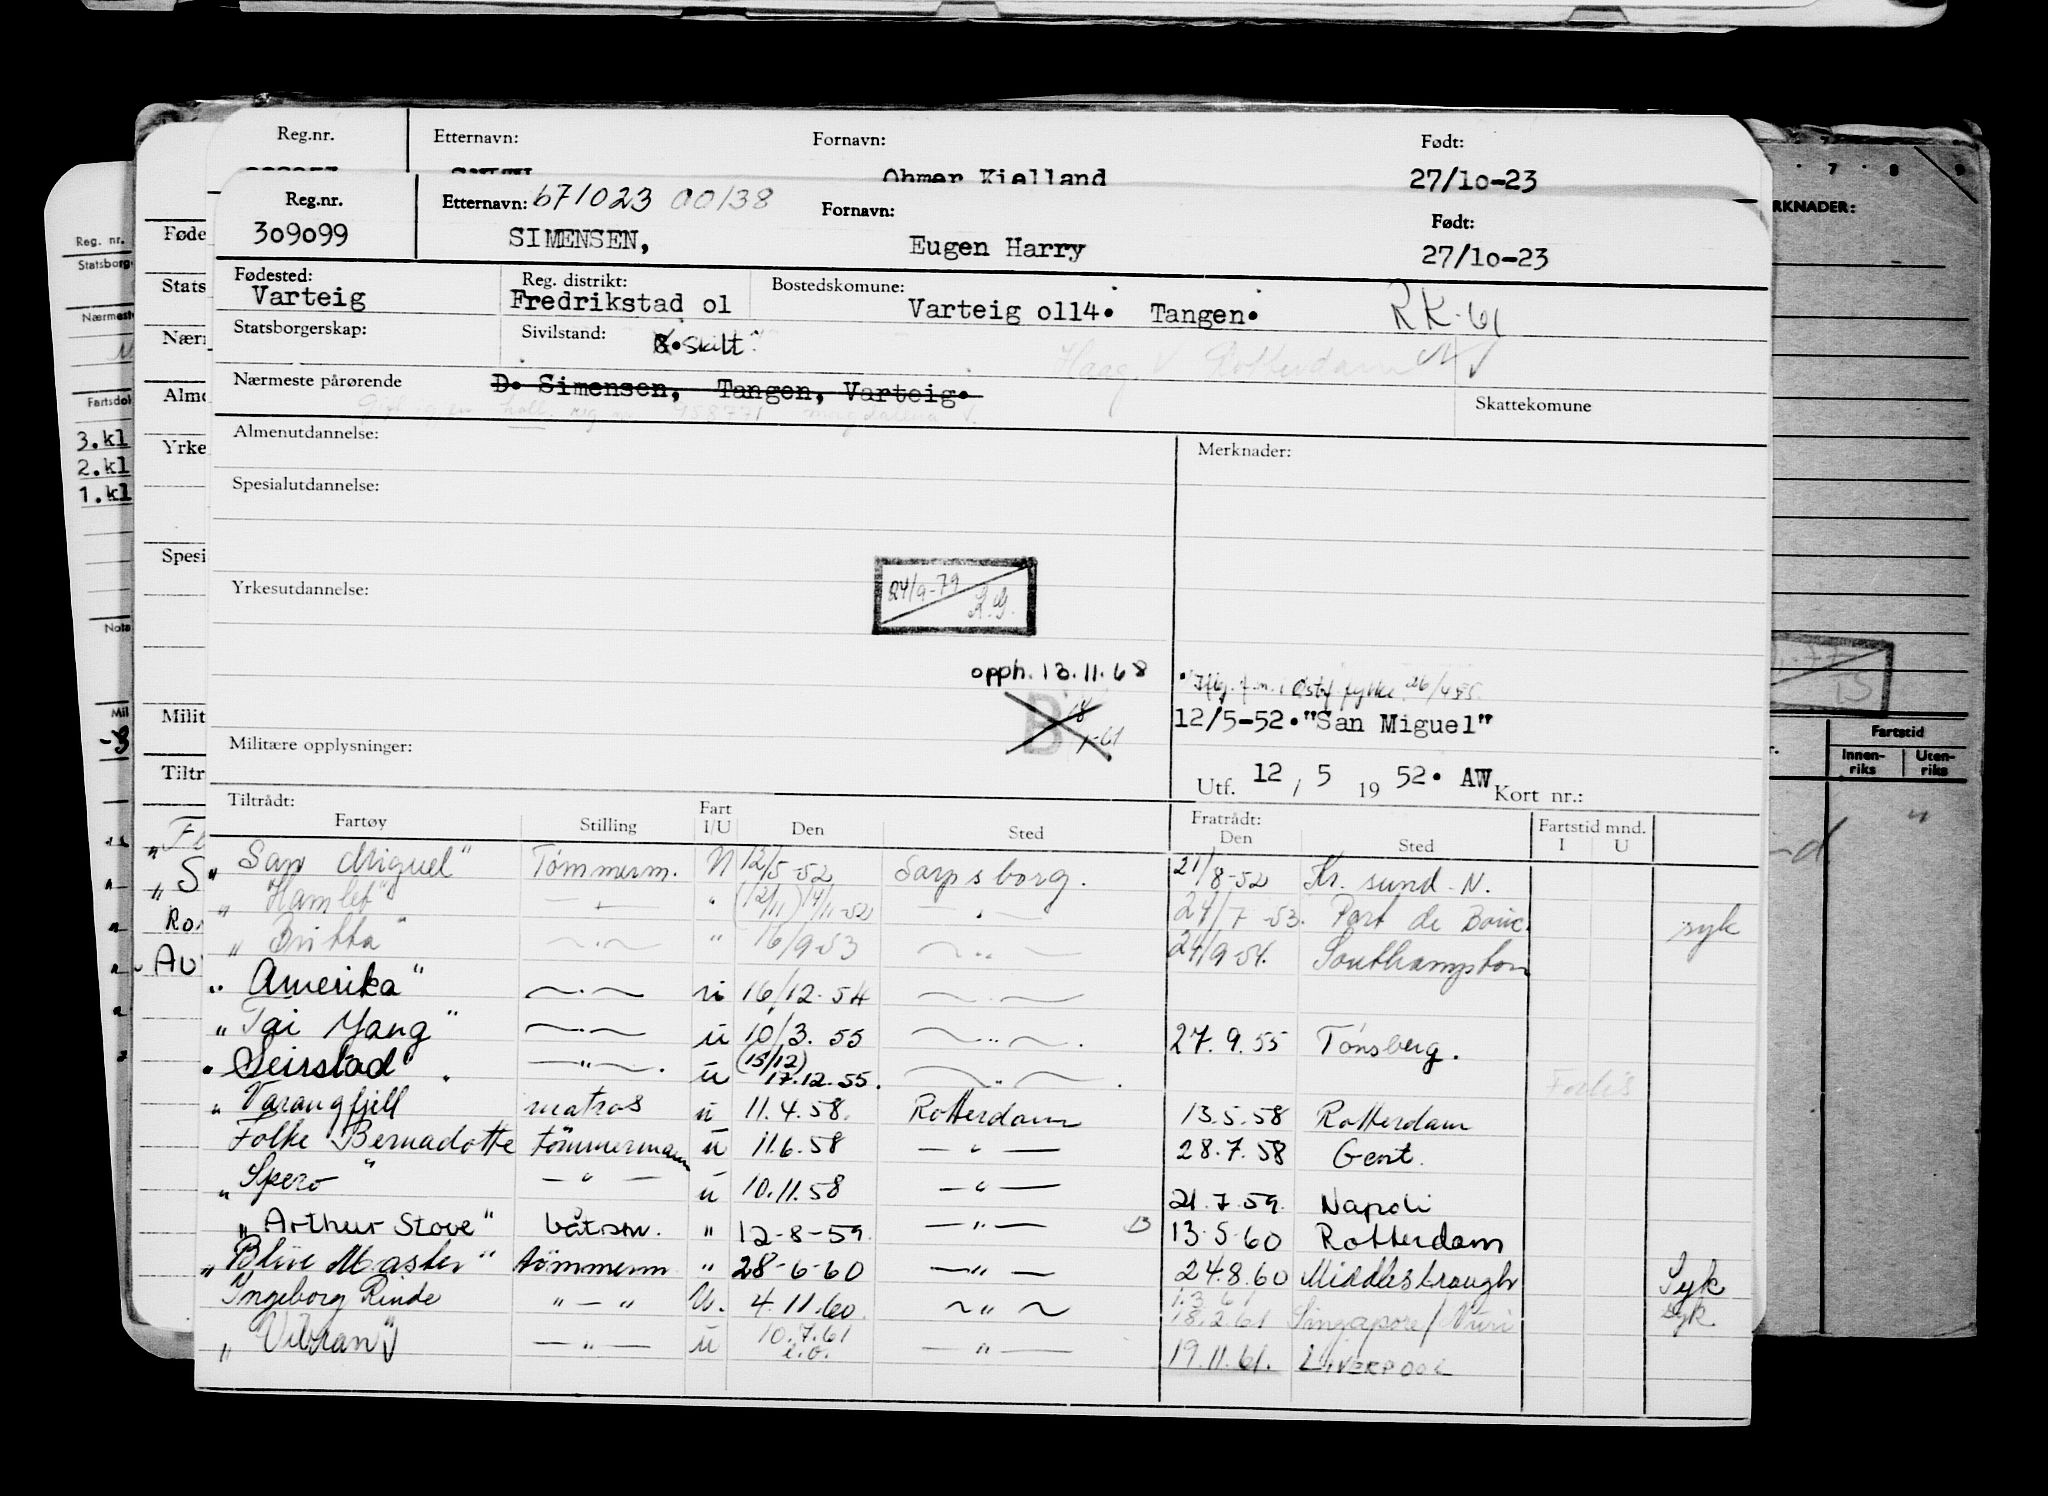 Reg.nr. Etternavn: Fornavn: Født:
Ohmer Kielland 27/10-23
Reg.nr. Etternavn: 671023 00138 Fornavn: Født:
309099 SIMENSEN, Eugen Harry 27/10-23
Fødested: Reg. distrikt: Bostedskomune:
Varteig Fredrikstad 01 Varteig 0114. Tangen. RK-61
Statsborgerskap: Sivilstand: skilt
Haag V Rotterdam
Nærmeste pårørende D. Simensen, Tangen, Varteig.
Skattekomune
Almenutdannelse: Merknader:
Spesialutdannelse:
Yrkesutdannelse: 24/9-79
opph. 13.11.68
12/5-52."San Miguel"
B 18/1-61
Militære opplysninger:
Utf. 12 / 5 19 52. AW Kort nr.:
Tiltrådt: Fratrådt:
Fartøy Stilling Fart I/U Den Sted Den Sted Fartstid mnd. I U
"San Miguel" Tømmerm. N 12/5-52 Sarpsborg. 21/8-52 Kr. sund. N.
"Hamlet" — " — " (12/11) 14/11-52 — " — 24/7-53. Port de Bouc. syk
"Britta" — " — " 16/9-53 — " — 24/9-54. Southampton
"Amerika" — " — u 16/12-54 — " —
"Tai Yang" — " — u 10/3.55 — " — 27.9.55 Tønsberg.
"Seirstad" — " — u (15/12) 17.12.55. — " —
"Varangfjell matros u 11.4.58. Rotterdam 13.5.58 Rotterdam
Folke Bernadotte tømmermann u 11.6.58 — " — 28.7.58 Gent.
"Spero" — " — u 10.11.58 — " — 21.7.59. Napoli
"Arthur Stove" båtsm. " 12-8-59. — " — 13 13.5.60 Rotterdam
"Blue Master" tømmerm " 28-6-60 — " — 24.8.60 Middlesbrough Syk
Ingeborg Rinde " — " U. 4.11.60. — " — 1.3.61
18.2.61 Singapore/ syk.
"Vibran" — " — u 10.7.61 — " — 19.11.61. LIVERPOOL
e.o.
Føde
Stats
Nærr
Almo
Yrke
Spesi
Milit
Tiltr
Reg. nr.
Statsborg
Nærmest
Fartsdok
3.kl
2.kl
1.kl
Nota
Mil
RKNADER:
7 8 9
Fartstid
Innen-riks Uten-riks